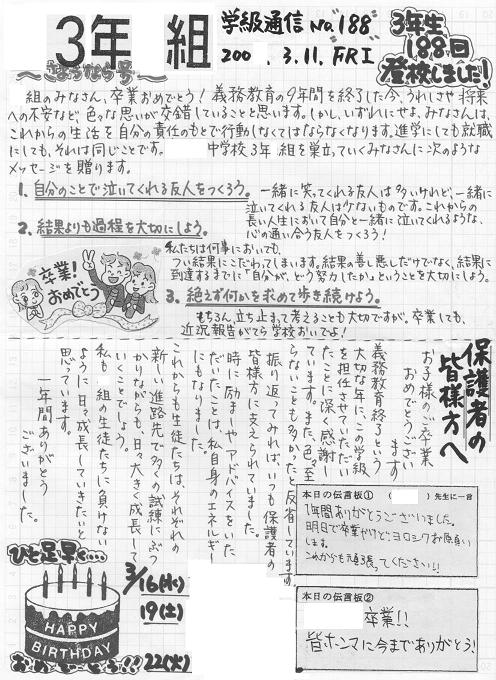 3年 組
学級通信 No.188
200 . 3.11. FRI
3年生
188回
登校しました!
〜さよなら号〜
組のみなさん、卒業おめでとう! 義務教育の9年間を終了した今、うれしさや将来
への不安など、色々な思いが交錯していることと思います。しかし、いずれにせよ、みなさんは、
これからの生活を自分の責任のもとで行動しなくてはならなくなります。進学にしても就職
にしても、それは同じことです。 中学校3年 組を巣立っていくみなさんに次のような
メッセージを贈ります。
1. 自分のことで泣いてくれる友人をつくろう。
一緒に笑ってくれる友人は多いけれど、一緒に
泣いてくれる友人は少ないものです。これからの
長い人生において自分と一緒に泣いてくれるような、
心の通い合う友人をつくろう!
2. 結果よりも過程を大切にしよう。
私たちは何事においても、
つい結果にこだわってしまいます。結果の善し悪しだけでなく、結果に
到達するまでに「自分が、どう努力したか」ということを大切にしよう。
卒業!
おめでとう
3. 絶えず何かを求めて歩き続けよう。
もちろん、立ち止まって考えることも大切ですが、卒業しても、
近況報告がてら学校においでよ!
保護者の
皆様方へ
お子様のご卒業
おめでとうござい
ます
義務教育終了という
大切な年に、この学級
を担任させていただい
たことに深く感謝し
ています。また、色々至
らないことも多かったと反省しています。
振り返ってみれば、いつも保護者の
皆様方に支えられていました。
時に励ましやアドバイスをいた
だいたことは、私自身のエネルギー
にもなりました。
これからも生徒たちは、それぞれの
新しい進路先で多くの試練にぶつ
かりながらも、日々大きく成長して
いくことでしょう。
私も 組の生徒たちに負けない
ように日々成長していきたいと
思っています。
一年間ありがとう
ございました。
本日の伝言板① ( )先生に一言
1年間ありがとうございました。
明日で卒業だけど、ヨロシクお願いします。
これからも頑張ってください!!
本日の伝言板②
卒業!!
皆ホンマに今までありがとう!
ひと足早く…
HAPPY
BIRTHDAY
3/16(水)
19(土)
22(火)
おめでとう!!